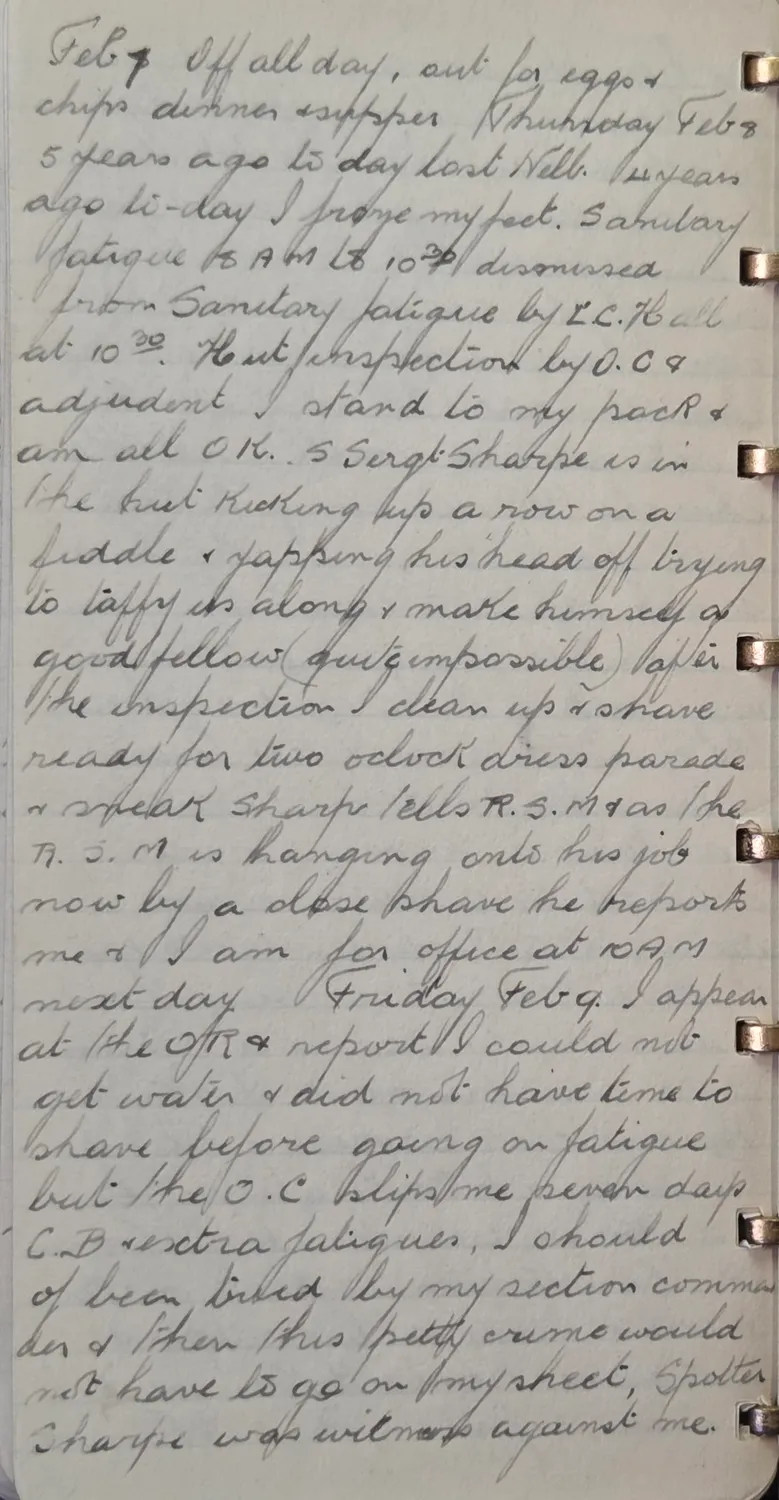 Feb 7 Off all day, out for eggs &
chips dinner & supper Thursday Feb 8
5 years ago to day lost Nell. 4 years
ago to-day I froze my feet. Sanitary
fatigue 8 AM to 10 30 dismissed
from Sanitary fatigue by L.C. Hall
at 10 30. Hut inspection by O.C &
adjudent I stand to my pack &
am all OK. S Sergt Sharpe is in
the hut kicking up a row on a
fiddle & yapping his head off trying
to taffy us along & make himself a
good fellow (quite impossible) after
the inspection I clean up & shave
ready for two oclock dress parade
& sneak Sharp tells R.S.M & as the
R.S.M is hanging onto his job
now by a close shave he reports
me & I am for office at 10 AM
next day Friday Feb 9. I appear
at the OR & report I could not
get water & did not have time to
shave before going on fatigue
but the O.C slips me seven days
C.B & extra fatigues, I should
of been tried by my section comman
der & then this petty crime would
not have to go on my sheet, Spotter
Sharpe was witness against me.